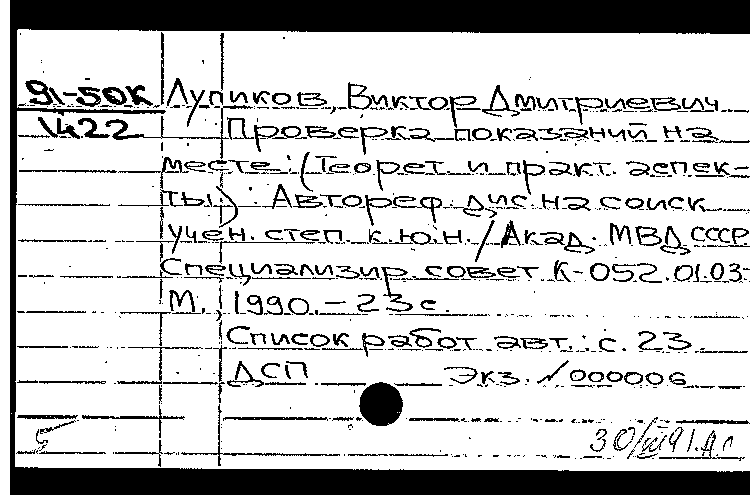 91-50К Лупиков, Виктор Дмитриевич
1422 Проверка показаний на
месте: (Теорет. и практ. аспек-
ты): Автореф. дис. на соиск
учен. степ. к.ю.н. / Акад. МВД СССР
Специализир. совет К-052.01.03-
М., 1990.-23с.
Список работ авт.: с. 23.
ДСП Экз. №000006
30/III 91.